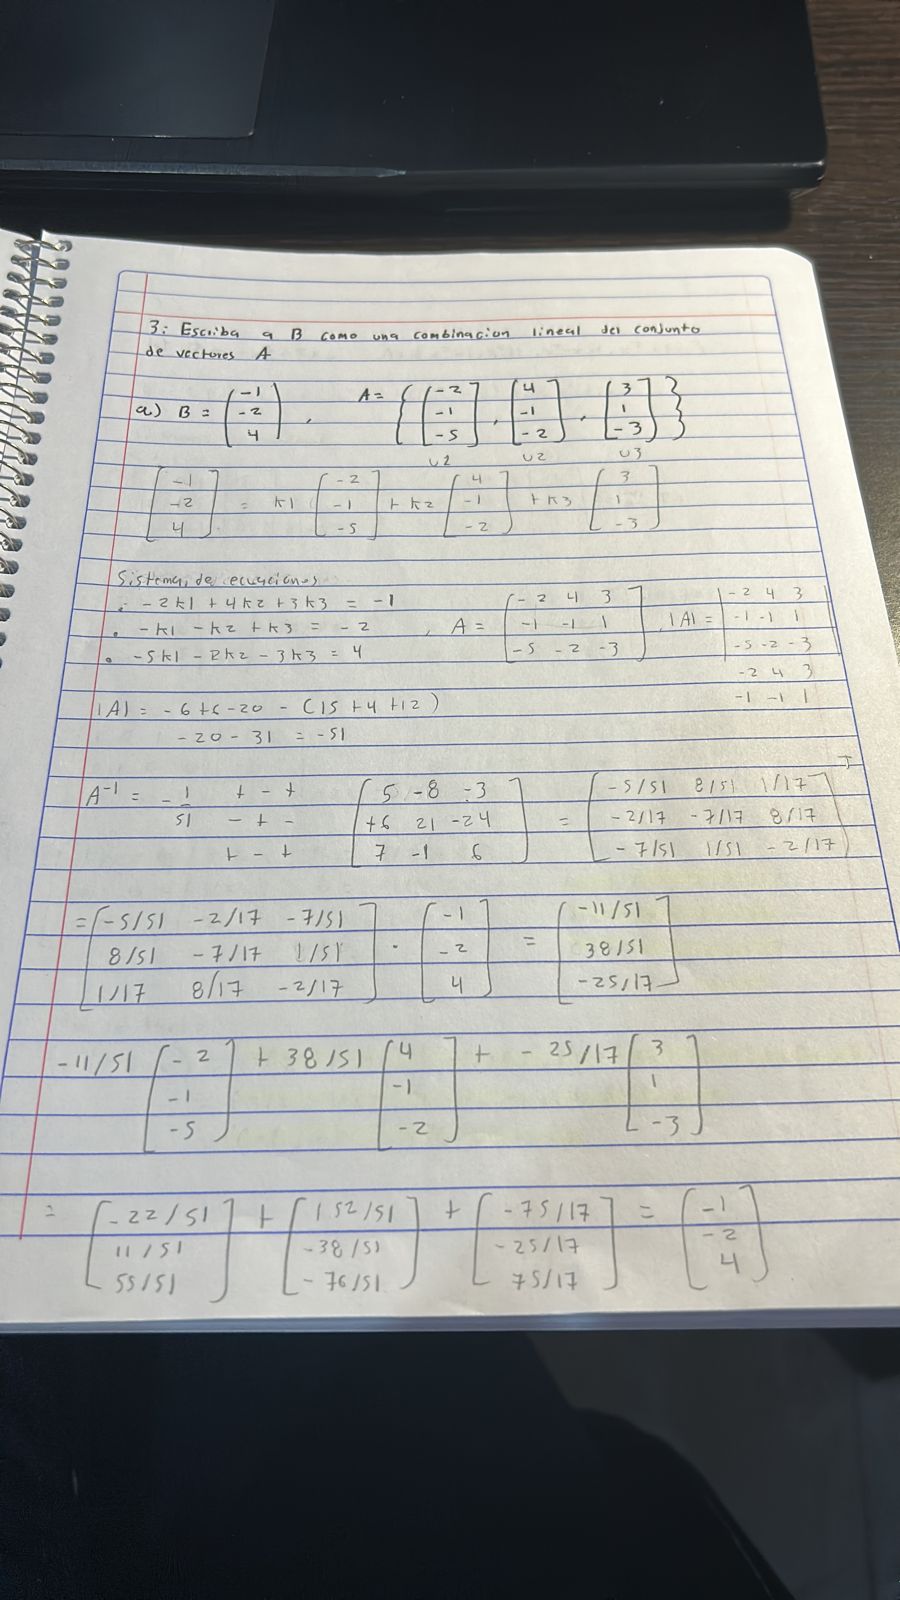 3: Escriba a B como una combinacion lineal del conjunto
de vectores A
a) B = (-1 -2 4) , A = { [-2 -1 -5] , [4 -1 -2] , [3 1 -3] }
u2 u2 u3
[-1 -2 4] = k1 [-2 -1 -5] + k2 [4 -1 -2] + k3 [3 1 -3]
Sistema, de ecuaciones
• -2k1 + 4k2 + 3k3 = -1
• -k1 - k2 + k3 = -2 , A = [-2 4 3; -1 -1 1; -5 -2 -3] , |A| = |-2 4 3; -1 -1 1; -5 -2 -3|
• -5k1 - 2k2 - 3k3 = 4
-2 4 3
-1 -1 1
|A| = -6+6-20 - (15 + 4 + 12)
-20 - 31 = -51
A⁻¹ = - 1/51 + - + [5 -8 -3; +6 21 -24; 7 -1 6] = [-5/51 8/51 1/17; -2/17 -7/17 8/17; -7/51 1/51 -2/17] T
- + -
+ - +
= [-5/51 -2/17 -7/51; 8/51 -7/17 1/51; 1/17 8/17 -2/17] · [-1 -2 4] = [-11/51 38/51 -25/17]
-11/51 [-2 -1 -5] + 38/51 [4 -1 -2] + - 25/17 [3 1 -3]
= [-22/51 11/51 55/51] + [152/51 -38/51 -76/51] + [-75/17 -25/17 75/17] = [-1 -2 4]